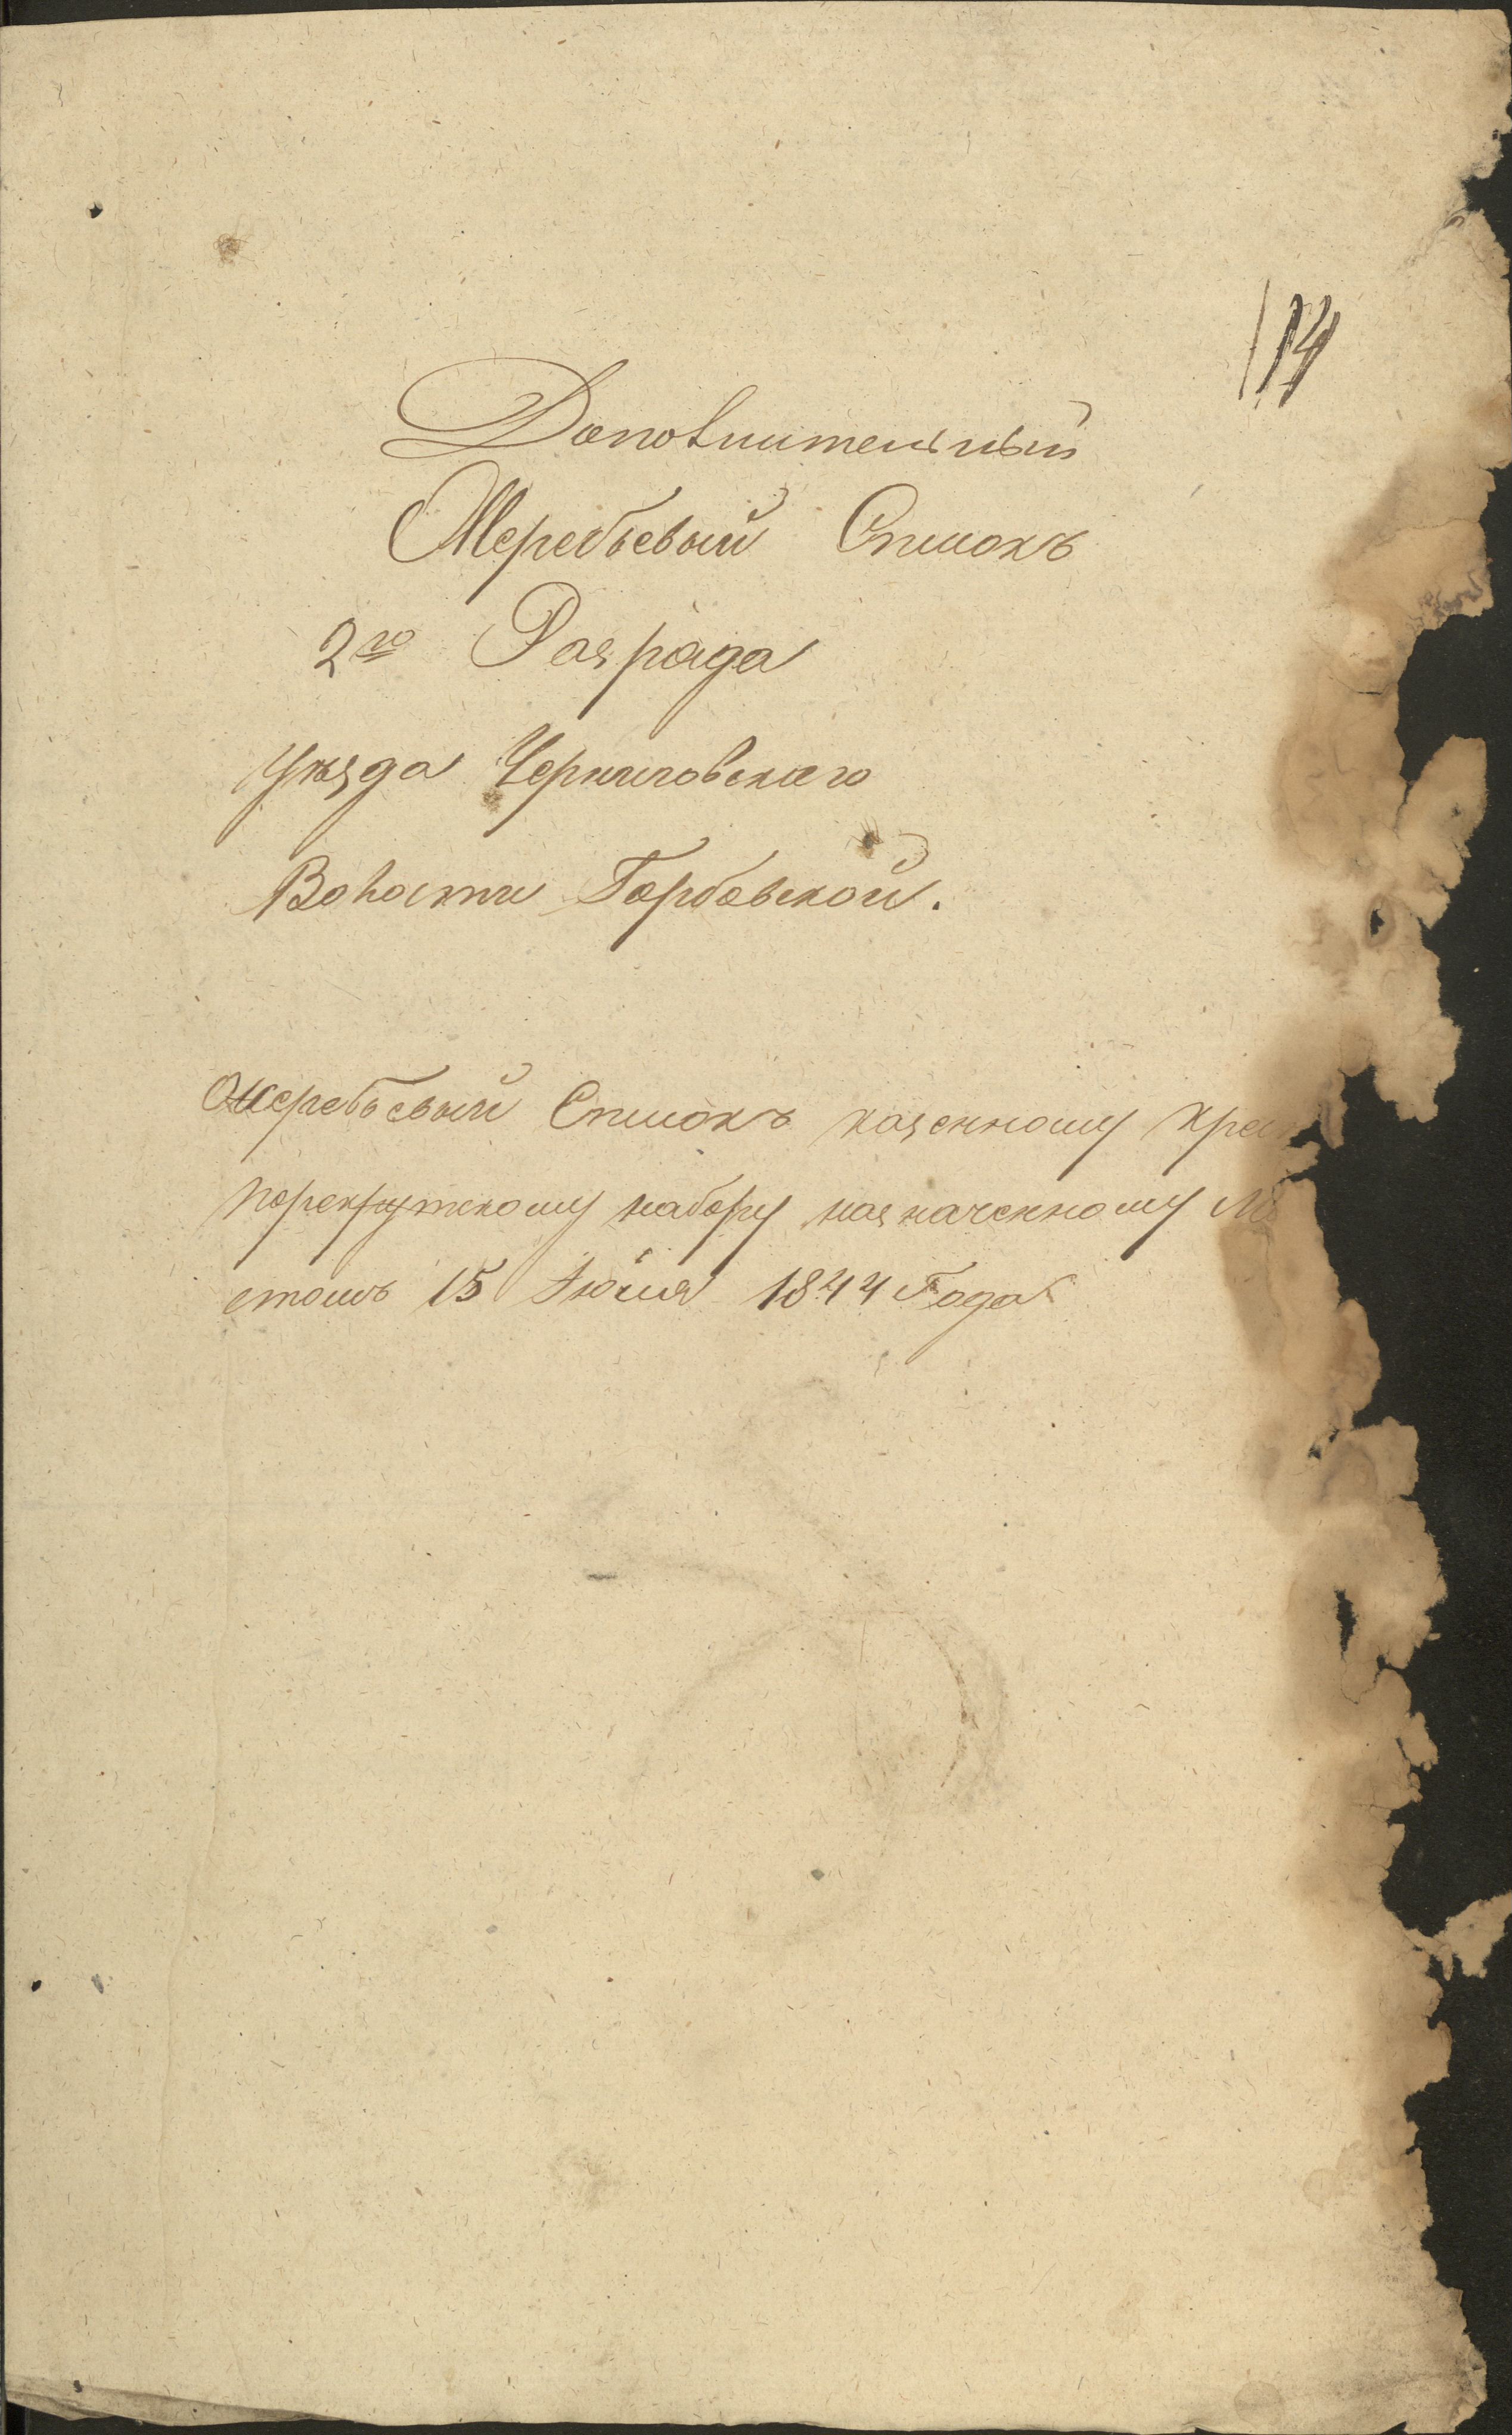 14
Дополнительный
Жеребьевый Списокъ
2го Разряда
Уѣзда Черниговскаго
Волости Горбовской.
Жеребьевый Списокъ казенному
порекрутскому набору назначенному
стомъ 15 Июля 1844 Года